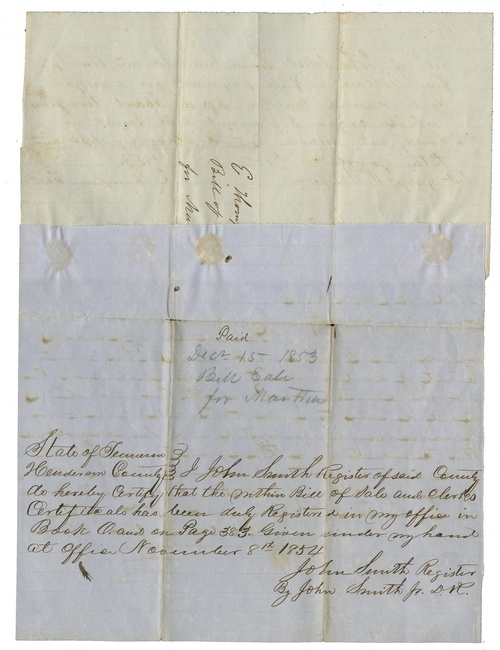 E Thom
Bill of
for Mar
Paid
Decr 15 1853
Bill Sale
for Martha
State of Tennessee
Henderson County I John Smith Register of said County
do hereby Certify that the within Bill of Sale and Clerks
Certificate has been duly Registered in my office in
Book O. and on Page 383. Given under my hand
at office November 8th 1854
John Smith Register
By John Smith Jr. D.R.